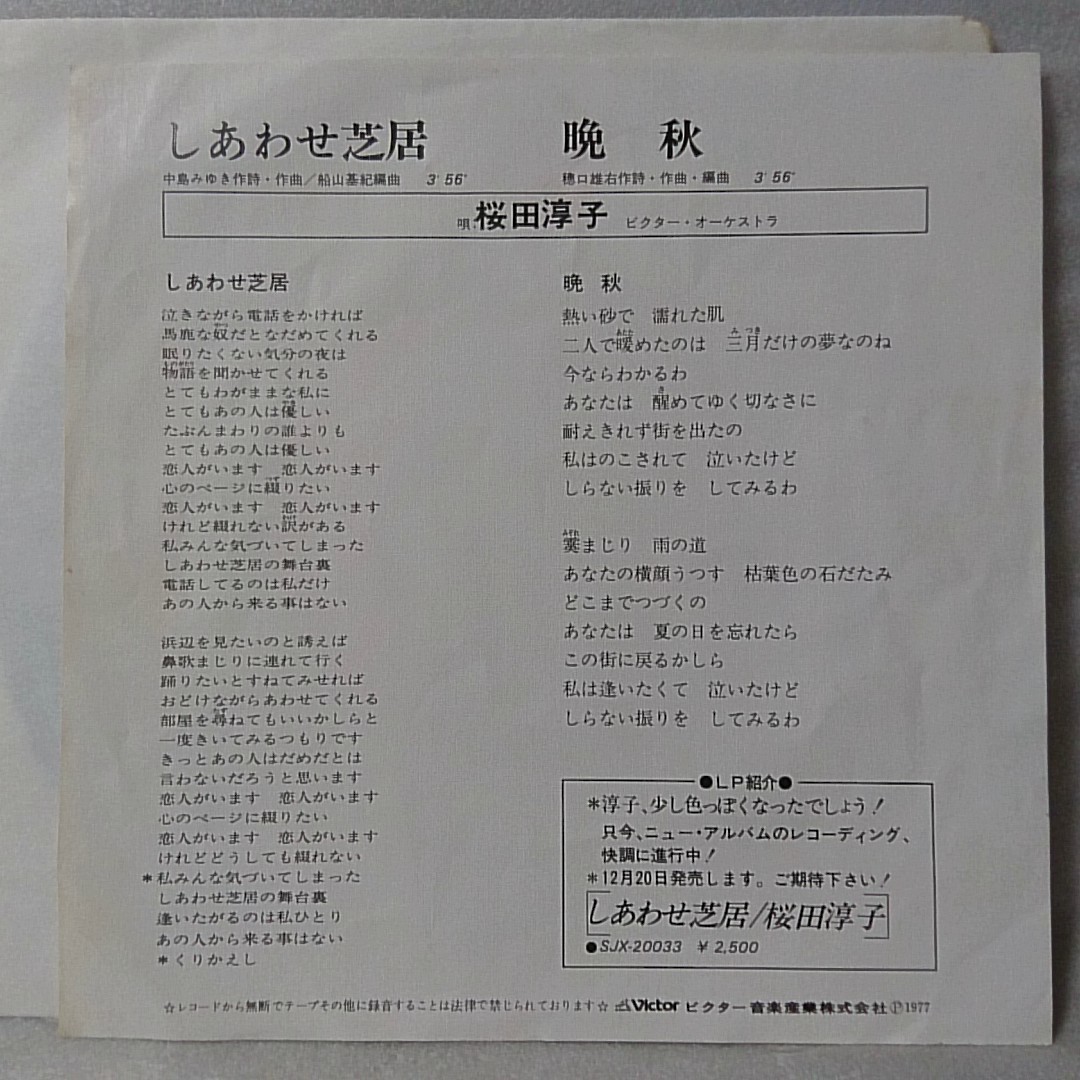 しあわせ芝居
中島みゆき作詩・作曲／船山基紀編曲 3′56″
晩 秋
穂口雄右作詩・作曲・編曲 3′56″
唄:桜田淳子 ビクター・オーケストラ
しあわせ芝居
泣きながら電話をかければ
馬鹿な奴だとなだめてくれる
眠りたくない気分の夜は
物語を聞かせてくれる
とてもわがままな私に
とてもあの人は優しい
たぶんまわりの誰よりも
とてもあの人は優しい
恋人がいます 恋人がいます
心のページに綴りたい
恋人がいます 恋人がいます
けれど綴れない訳がある
私みんな気づいてしまった
しあわせ芝居の舞台裏
電話してるのは私だけ
あの人から来る事はない
浜辺を見たいのと誘えば
鼻歌まじりに連れて行く
踊りたいとすねてみせれば
おどけながらあわせてくれる
部屋を尋ねてもいいかしらと
一度きいてみるつもりです
きっとあの人はだめだとは
言わないだろうと思います
恋人がいます 恋人がいます
心のページに綴りたい
恋人がいます 恋人がいます
けれどどうしても綴れない
＊私みんな気づいてしまった
しあわせ芝居の舞台裏
逢いたがるのは私ひとり
あの人から来る事はない
＊くりかえし
晩 秋
熱い砂で 濡れた肌
二人で暖めたのは 三月だけの夢なのね
今ならわかるわ
あなたは 醒めてゆく切なさに
耐えきれず街を出たの
私はのこされて 泣いたけど
しらない振りを してみるわ
霙まじり 雨の道
あなたの横顔うつす 枯葉色の石だたみ
どこまでつづくの
あなたは 夏の日を忘れたら
この街に戻るかしら
私は逢いたくて 泣いたけど
しらない振りを してみるわ
●LP紹介●
＊淳子、少し色っぽくなったでしょう！
只今、ニュー・アルバムのレコーディング、
快調に進行中！
＊12月20日発売します。ご期待下さい！
しあわせ芝居/桜田淳子
●SJX-20033 ￥2,500
☆レコードから無断でテープその他に録音することは法律で禁じられております☆ Victor ビクター音楽産業株式会社Ⓟ1977